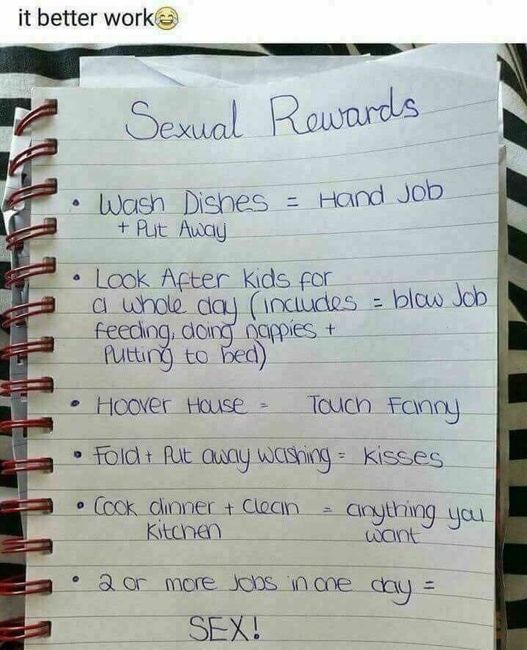 it better work😂
Sexual Rewards
• Wash Dishes = Hand Job
+ Put Away
• Look After kids for
a whole day (includes = blow Job
feeding, doing nappies +
Putting to bed)
• Hoover House = Touch Fanny
• Fold + Put away washing = kisses
• Cook dinner + Clean = anything you
kitchen want
• 2 or more Jobs in one day =
SEX!